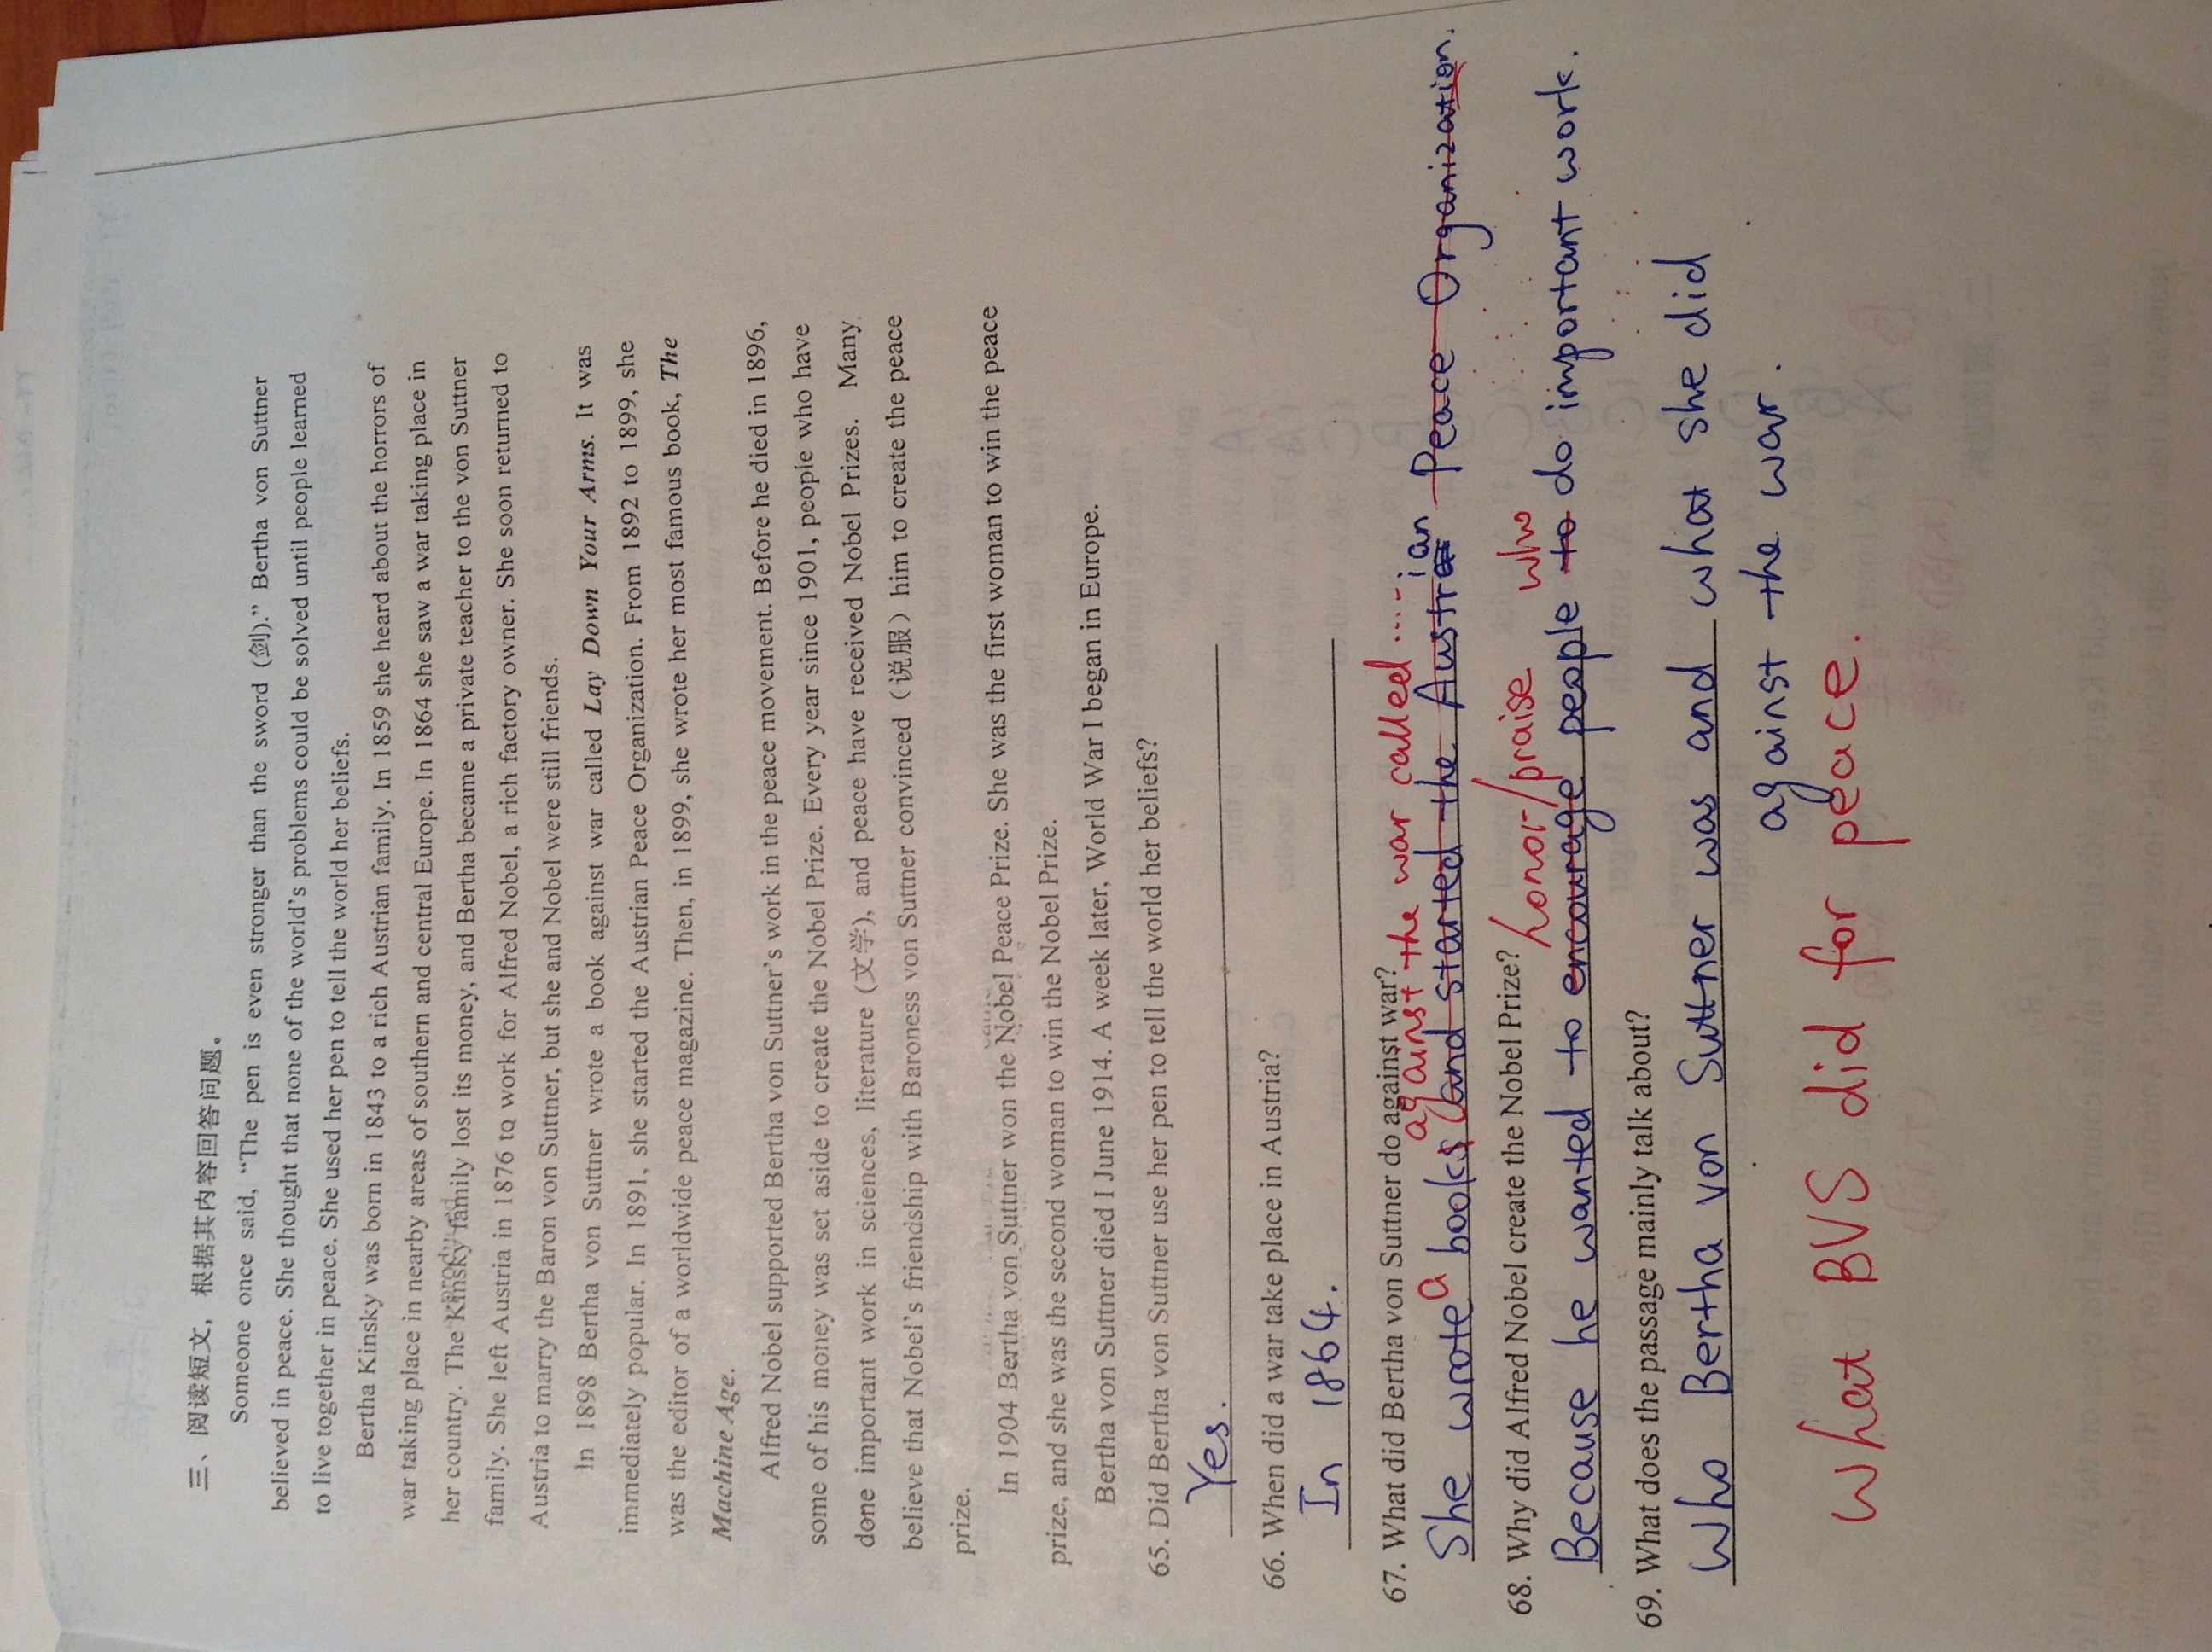 三、阅读短文，根据其内容回答问题。
Someone once said, “The pen is even stronger than the sword (剑).” Bertha von Suttner
believed in peace. She thought that none of the world's problems could be solved until people learned
to live together in peace. She used her pen to tell the world her beliefs.
Bertha Kinsky was born in 1843 to a rich Austrian family. In 1859 she heard about the horrors of
war taking place in nearby areas of southern and central Europe. In 1864 she saw a war taking place in
her country. The Kinsky family lost its money, and Bertha became a private teacher to the von Suttner
family. She left Austria in 1876 to work for Alfred Nobel, a rich factory owner. She soon returned to
Austria to marry the Baron von Suttner, but she and Nobel were still friends.
In 1898 Bertha von Suttner wrote a book against war called Lay Down Your Arms. It was
immediately popular. In 1891, she started the Austrian Peace Organization. From 1892 to 1899, she
was the editor of a worldwide peace magazine. Then, in 1899, she wrote her most famous book, The
Machine Age.
Alfred Nobel supported Bertha von Suttner's work in the peace movement. Before he died in 1896,
some of his money was set aside to create the Nobel Prize. Every year since 1901, people who have
done important work in sciences, literature (文学), and peace have received Nobel Prizes. Many
believe that Nobel's friendship with Baroness von Suttner convinced（说服）him to create the peace
prize.
In 1904 Bertha von Suttner won the Nobel Peace Prize. She was the first woman to win the peace
prize, and she was the second woman to win the Nobel Prize.
Bertha von Suttner died I June 1914. A week later, World War I began in Europe.
65. Did Bertha von Suttner use her pen to tell the world her beliefs?
Yes.
66. When did a war take place in Austria?
In 1864.
67. What did Bertha von Suttner do against war?
against the war called .....
She wrote a books (and started the Austrian Peace Organization.
68. Why did Alfred Nobel create the Nobel Prize?
honor/praise who
Because he wanted to encourage people to do important work.
69. What does the passage mainly talk about?
Who Bertha von Suttner was and what she did
against the war.
What BVS did for peace.